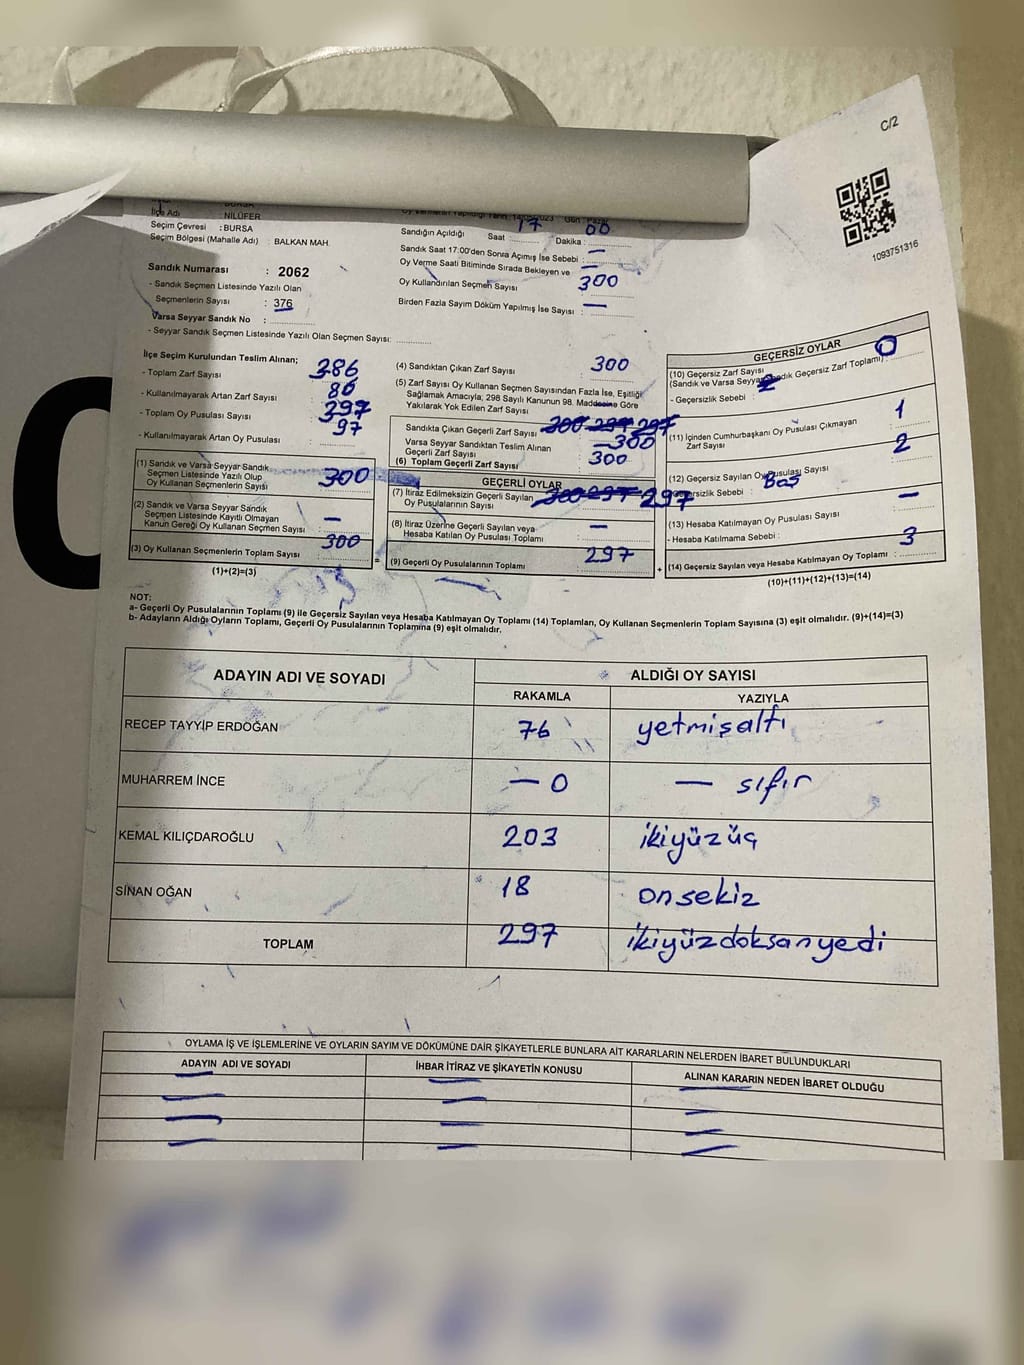 C/2
1093751316
İlçe Adı : NİLÜFER
Seçim Çevresi : BURSA
Seçim Bölgesi (Mahalle Adı) : BALKAN MAH.
Sandık Numarası : 2062
- Sandık Seçmen Listesinde Yazılı Olan
Seçmenlerin Sayısı : 376
Varsa Seyyar Sandık No :
- Seyyar Sandık Seçmen Listesinde Yazılı Olan Seçmen Sayısı:
Sandığın Açıldığı Saat 17 Dakika : 00
Sandık Saat 17:00'den Sonra Açımış İse Sebebi : —
Oy Verme Saati Bitiminde Sırada Bekleyen ve
Oy Kullandırılan Seçmen Sayısı : 300
Birden Fazla Sayım Döküm Yapılmış İse Sayısı : —
İlçe Seçim Kurulundan Teslim Alınan;
- Toplam Zarf Sayısı 386
- Kullanılmayarak Artan Zarf Sayısı 86
- Toplam Oy Pusulası Sayısı 397
- Kullanılmayarak Artan Oy Pusulası : 97
(1) Sandık ve Varsa Seyyar Sandık
Seçmen Listesinde Yazılı Olup
Oy Kullanan Seçmenlerin Sayısı : 300
(2) Sandık ve Varsa Seyyar Sandık
Seçmen Listesinde Kayıtlı Olmayan
Kanun Gereği Oy Kullanan Seçmen Sayısı : —
(3) Oy Kullanan Seçmenlerin Toplam Sayısı : 300
(1)+(2)=(3)
(4) Sandıktan Çıkan Zarf Sayısı : 300
(5) Zarf Sayısı Oy Kullanan Seçmen Sayısından Fazla İse, Eşitliği
Sağlamak Amacıyla; 298 Sayılı Kanunun 98. Maddesine Göre
Yakılarak Yok Edilen Zarf Sayısı
Sandıkta Çıkan Geçerli Zarf Sayısı 300 297 297
Varsa Seyyar Sandıktan Teslim Alınan
Geçerli Zarf Sayısı 300
(6) Toplam Geçerli Zarf Sayısı 300
GEÇERLİ OYLAR
(7) İtiraz Edilmeksizin Geçerli Sayılan
Oy Pusulalarının Sayısı 300 297 297
(8) İtiraz Üzerine Geçerli Sayılan veya
Hesaba Katılan Oy Pusulası Toplamı : —
(9) Geçerli Oy Pusulalarının Toplamı : 297
GEÇERSİZ OYLAR
(10) Geçersiz Zarf Sayısı
(Sandık ve Varsa Seyyar Sandık Geçersiz Zarf Toplamı) : 0
- Geçersizlik Sebebi :
(11) İçinden Cumhurbaşkanı Oy Pusulası Çıkmayan
Zarf Sayısı : 1
(12) Geçersiz Sayılan Oy Pusulası Sayısı : 2
Geçersizlik Sebebi : Boş
(13) Hesaba Katılmayan Oy Pusulası Sayısı : —
- Hesaba Katılmama Sebebi :
(14) Geçersiz Sayılan veya Hesaba Katılmayan Oy Toplamı : 3
(10)+(11)+(12)+(13)=(14)
NOT:
a- Geçerli Oy Pusulalarının Toplamı (9) ile Geçersiz Sayılan veya Hesaba Katılmayan Oy Toplamı (14) Toplamları, Oy Kullanan Seçmenlerin Toplam Sayısına (3) eşit olmalıdır. (9)+(14)=(3)
b- Adayların Aldığı Oyların Toplamı, Geçerli Oy Pusulalarının Toplamına (9) eşit olmalıdır.
ADAYIN ADI VE SOYADI ALDIĞI OY SAYISI
RAKAMLA YAZIYLA
RECEP TAYYİP ERDOĞAN 76 yetmişaltı
MUHARREM İNCE — 0 — sıfır
KEMAL KILIÇDAROĞLU 203 ikiyüzüç
SİNAN OĞAN 18 onsekiz
TOPLAM 297 ikiyüzdoksanyedi
OYLAMA İŞ VE İŞLEMLERİNE VE OYLARIN SAYIM VE DÖKÜMÜNE DAİR ŞİKAYETLERLE BUNLARA AİT KARARLARIN NELERDEN İBARET BULUNDUKLARI
ADAYIN ADI VE SOYADI İHBAR İTİRAZ VE ŞİKAYETİN KONUSU ALINAN KARARIN NEDEN İBARET OLDUĞU